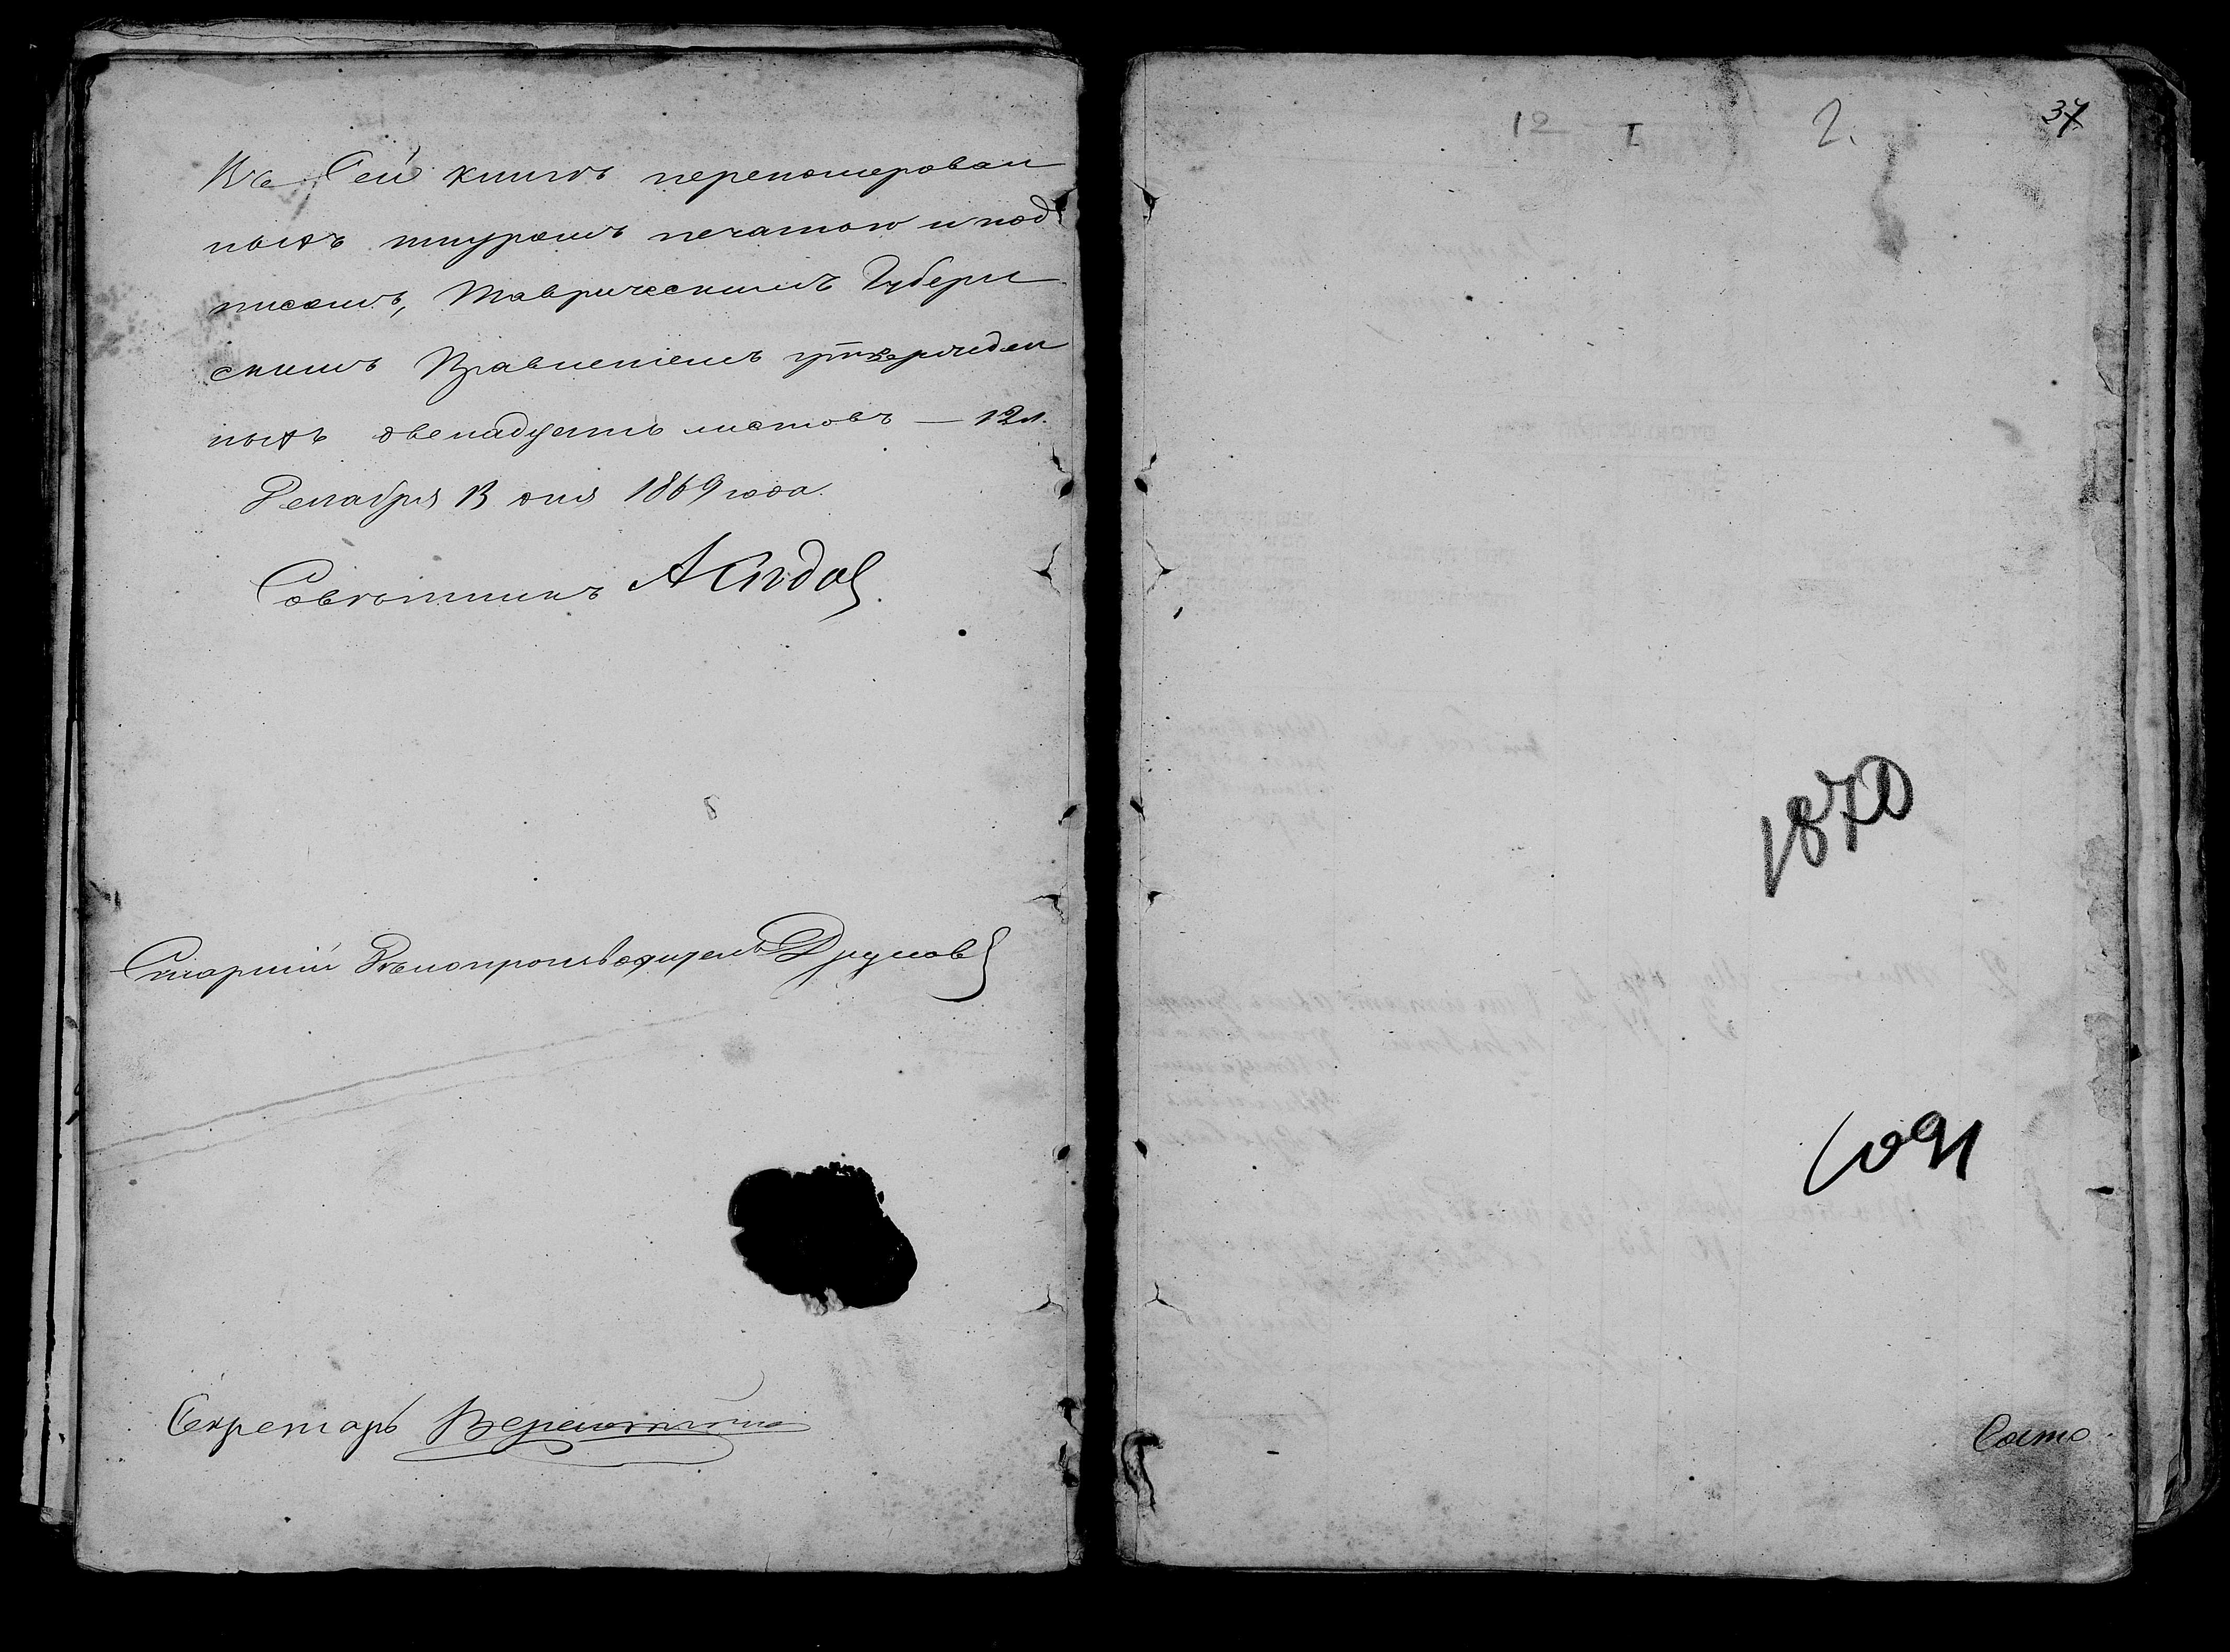 Въ Сей книгѣ перенумерован
ныхъ шнуромъ печатью и под
писомъ, Таврическимъ Губерн
скимъ Правленіемъ утвержден
ныхъ двенадцать листовъ — 12 л.
Декабря 13 дня 1869 года.
Совѣтникъ
Старшій Дѣлопроизводитель
Секретарь
12 I 2. 37
1870
1091